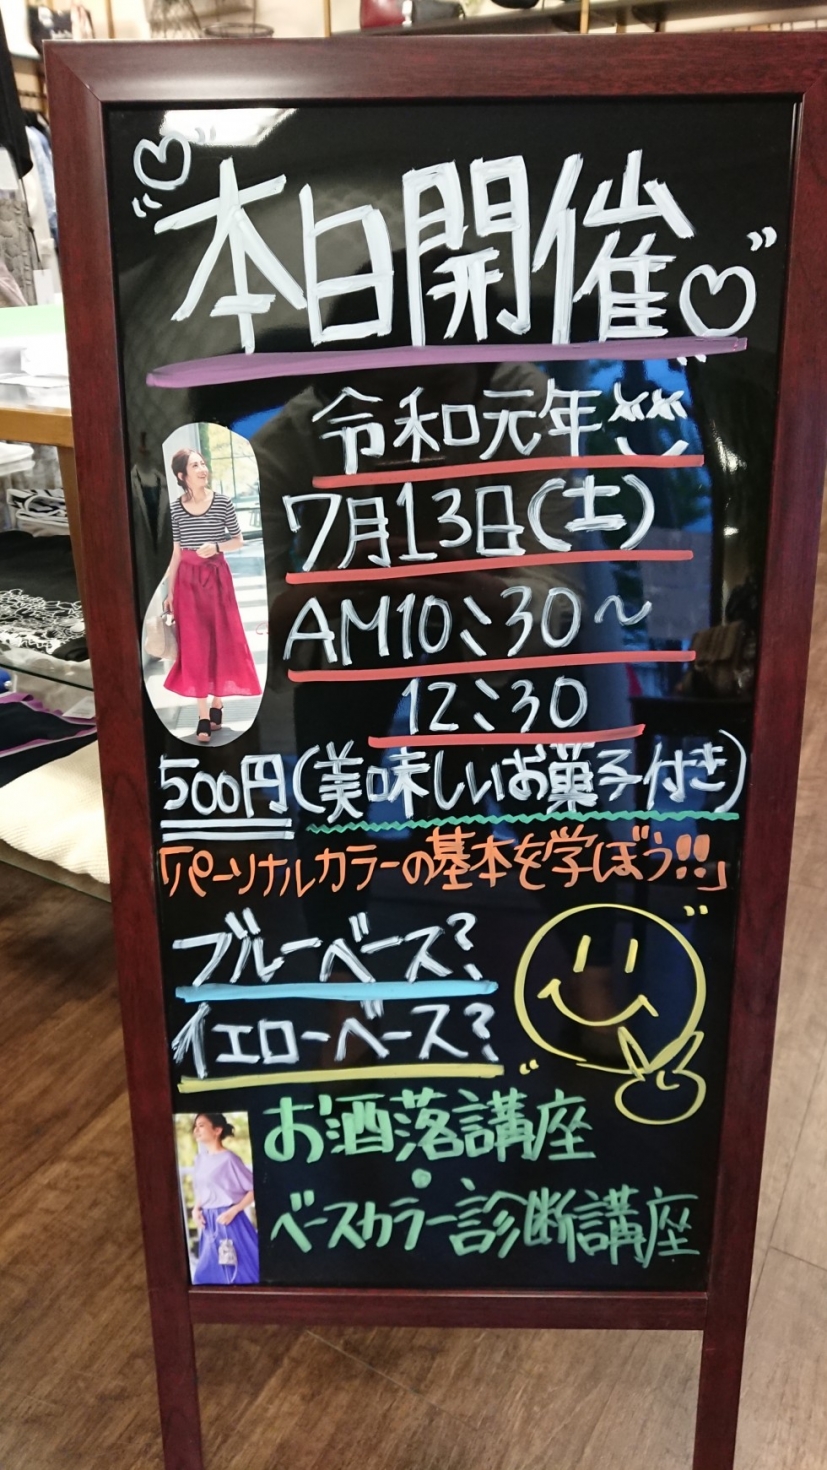 本日開催
令和元年
7月13日(土)
AM10:30~
12:30
500円(美味しいお菓子付き)
「パーソナルカラーの基本を学ぼう!!」
ブルーベース?
イエローベース?
お洒落講座
・
ベースカラー診断講座